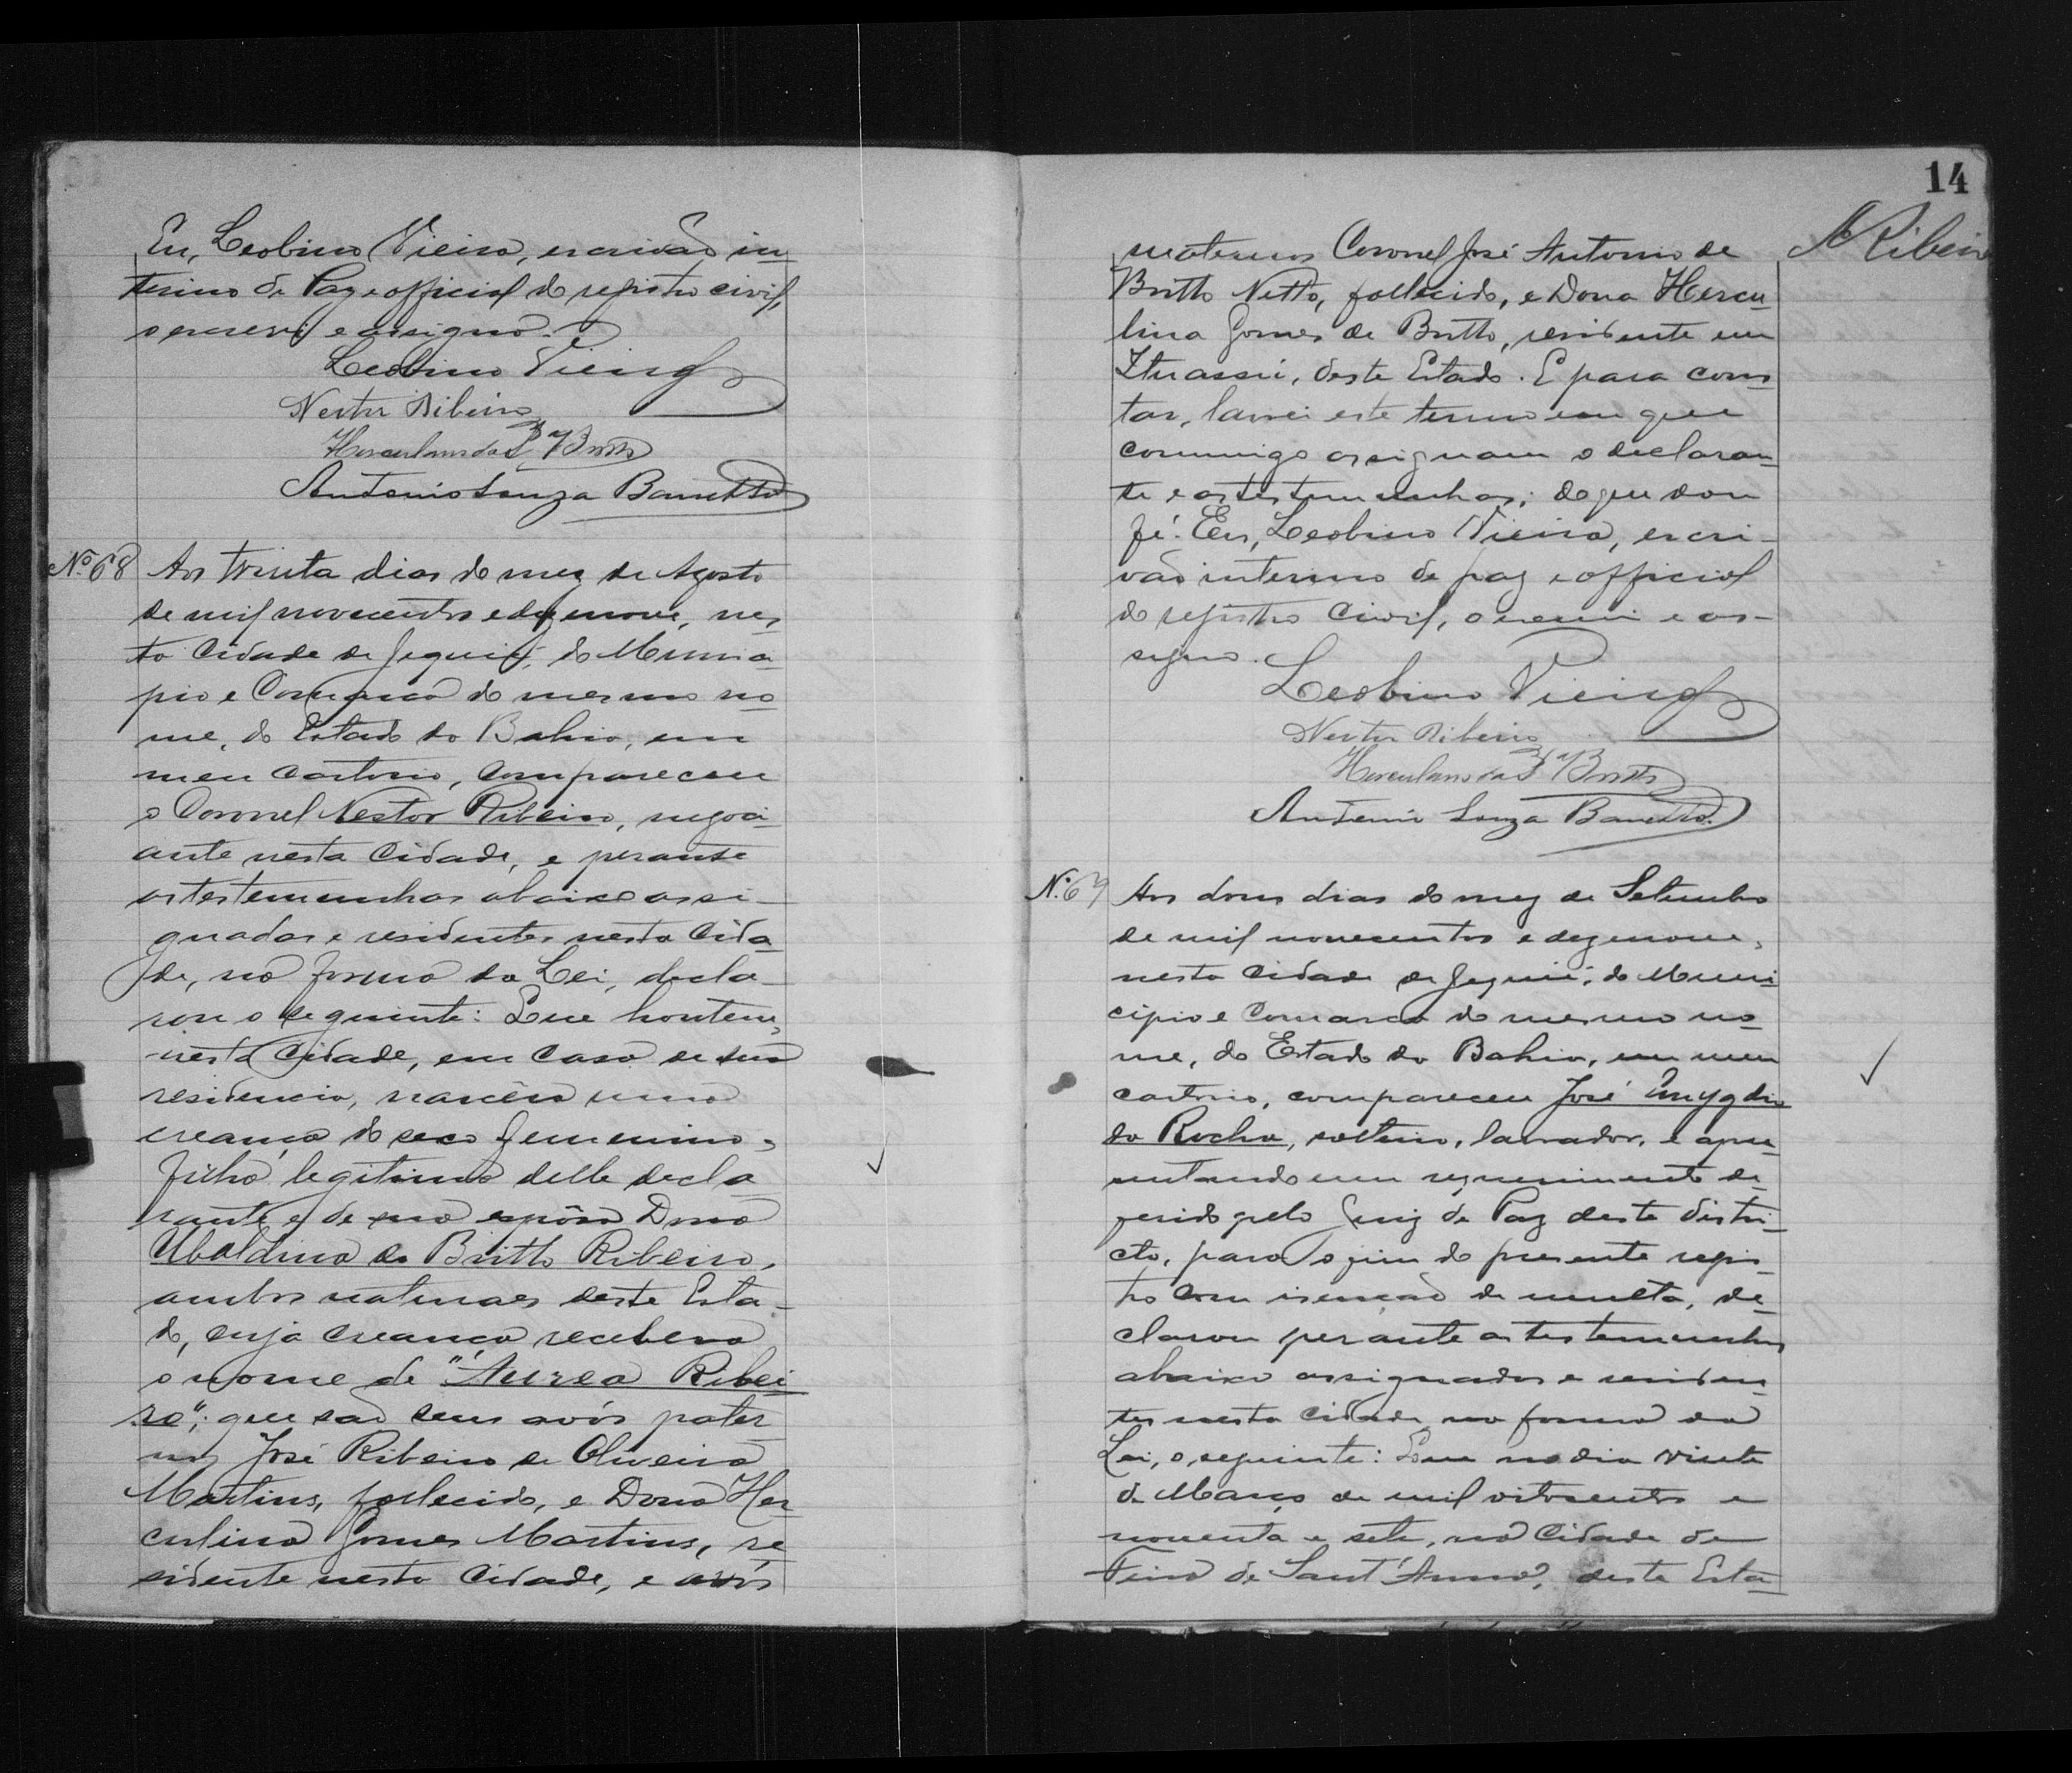 Eu, Leobino Vieira, escrivão in-
terino de Paz e official do registro civil,
o escrevi e assigno.
Leobino Vieira
Nestor Ribeiro
Herculano da S. Britto
Antonio Souza Barretto
Nº 68 Aos trinta dias do mez de Agosto
de mil novecentos e dezenove, nes-
ta Cidade de Jequié, do Munici-
pio e Comarca do mesmo no-
me, do Estado da Bahia, em
meu Cartorio, compareceu
o Coronel Nestor Ribeiro, negoci-
ante nesta Cidade, e perante
as testemunhas abaixo assi-
gnadas e residentes nesta Cida-
de, na forma da Lei, decla-
rou o seguinte: Que hontem,
nesta Cidade, em casa de sua
residencia, nascêra uma
creança do sexo femenino,
filha legitima delle decla-
rante e de sua espôsa Dona
Ubaldina de Britto Ribeiro,
ambos naturaes deste Esta-
do, cuja creança recebera
o nome de "Aurea Ribei-
ro"; que são seus avós pater-
nos José Ribeiro de Oliveira
Martins, fallecido, e Dona Her-
culina Gomes Martins, re-
sidente nesta Cidade, e avós
14
N Ribeiro
maternos Coronel José Antonio de
Britto Netto, fallecido, e Dona Hercu-
lina Gomes de Britto, residente em
Ituassú, deste Estado. E para cons-
tar, lavrei este termo em que
commigo assignam o declaran-
te e as testemunhas; do que dou
fé. Eu, Leobino Vieira, escri-
vão interino de paz e official
do registro civil, o escrevi e as-
signo.
Leobino Vieira
Nestor Ribeiro
Herculano da S. Britto
Antonio Souza Barretto.
N.º 69 Aos dous dias do mez de Setembro
de mil novecentos e dezenove,
nesta Cidade de Jequié, do Muni-
cipio e Comarca do mesmo no-
me, do Estado da Bahia, em meu
cartorio, compareceu José Emygdio
da Rocha, solteiro, lavrador, e apre-
sentando um requerimento de-
ferido pelo Juiz de Paz deste distri-
cto, para o fim do presente regis-
tro com isenção de multa, de-
clarou perante as testemunhas
abaixo assignadas e residen-
tes nesta Cidade, na forma da
Lei, o seguinte: Que no dia vinte
de Março de mil oitocentos e
noventa e sete, na Cidade de
Feira de Sant'Anna, deste Esta-